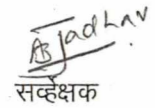 ABJadhav
सर्व्हेक्षक